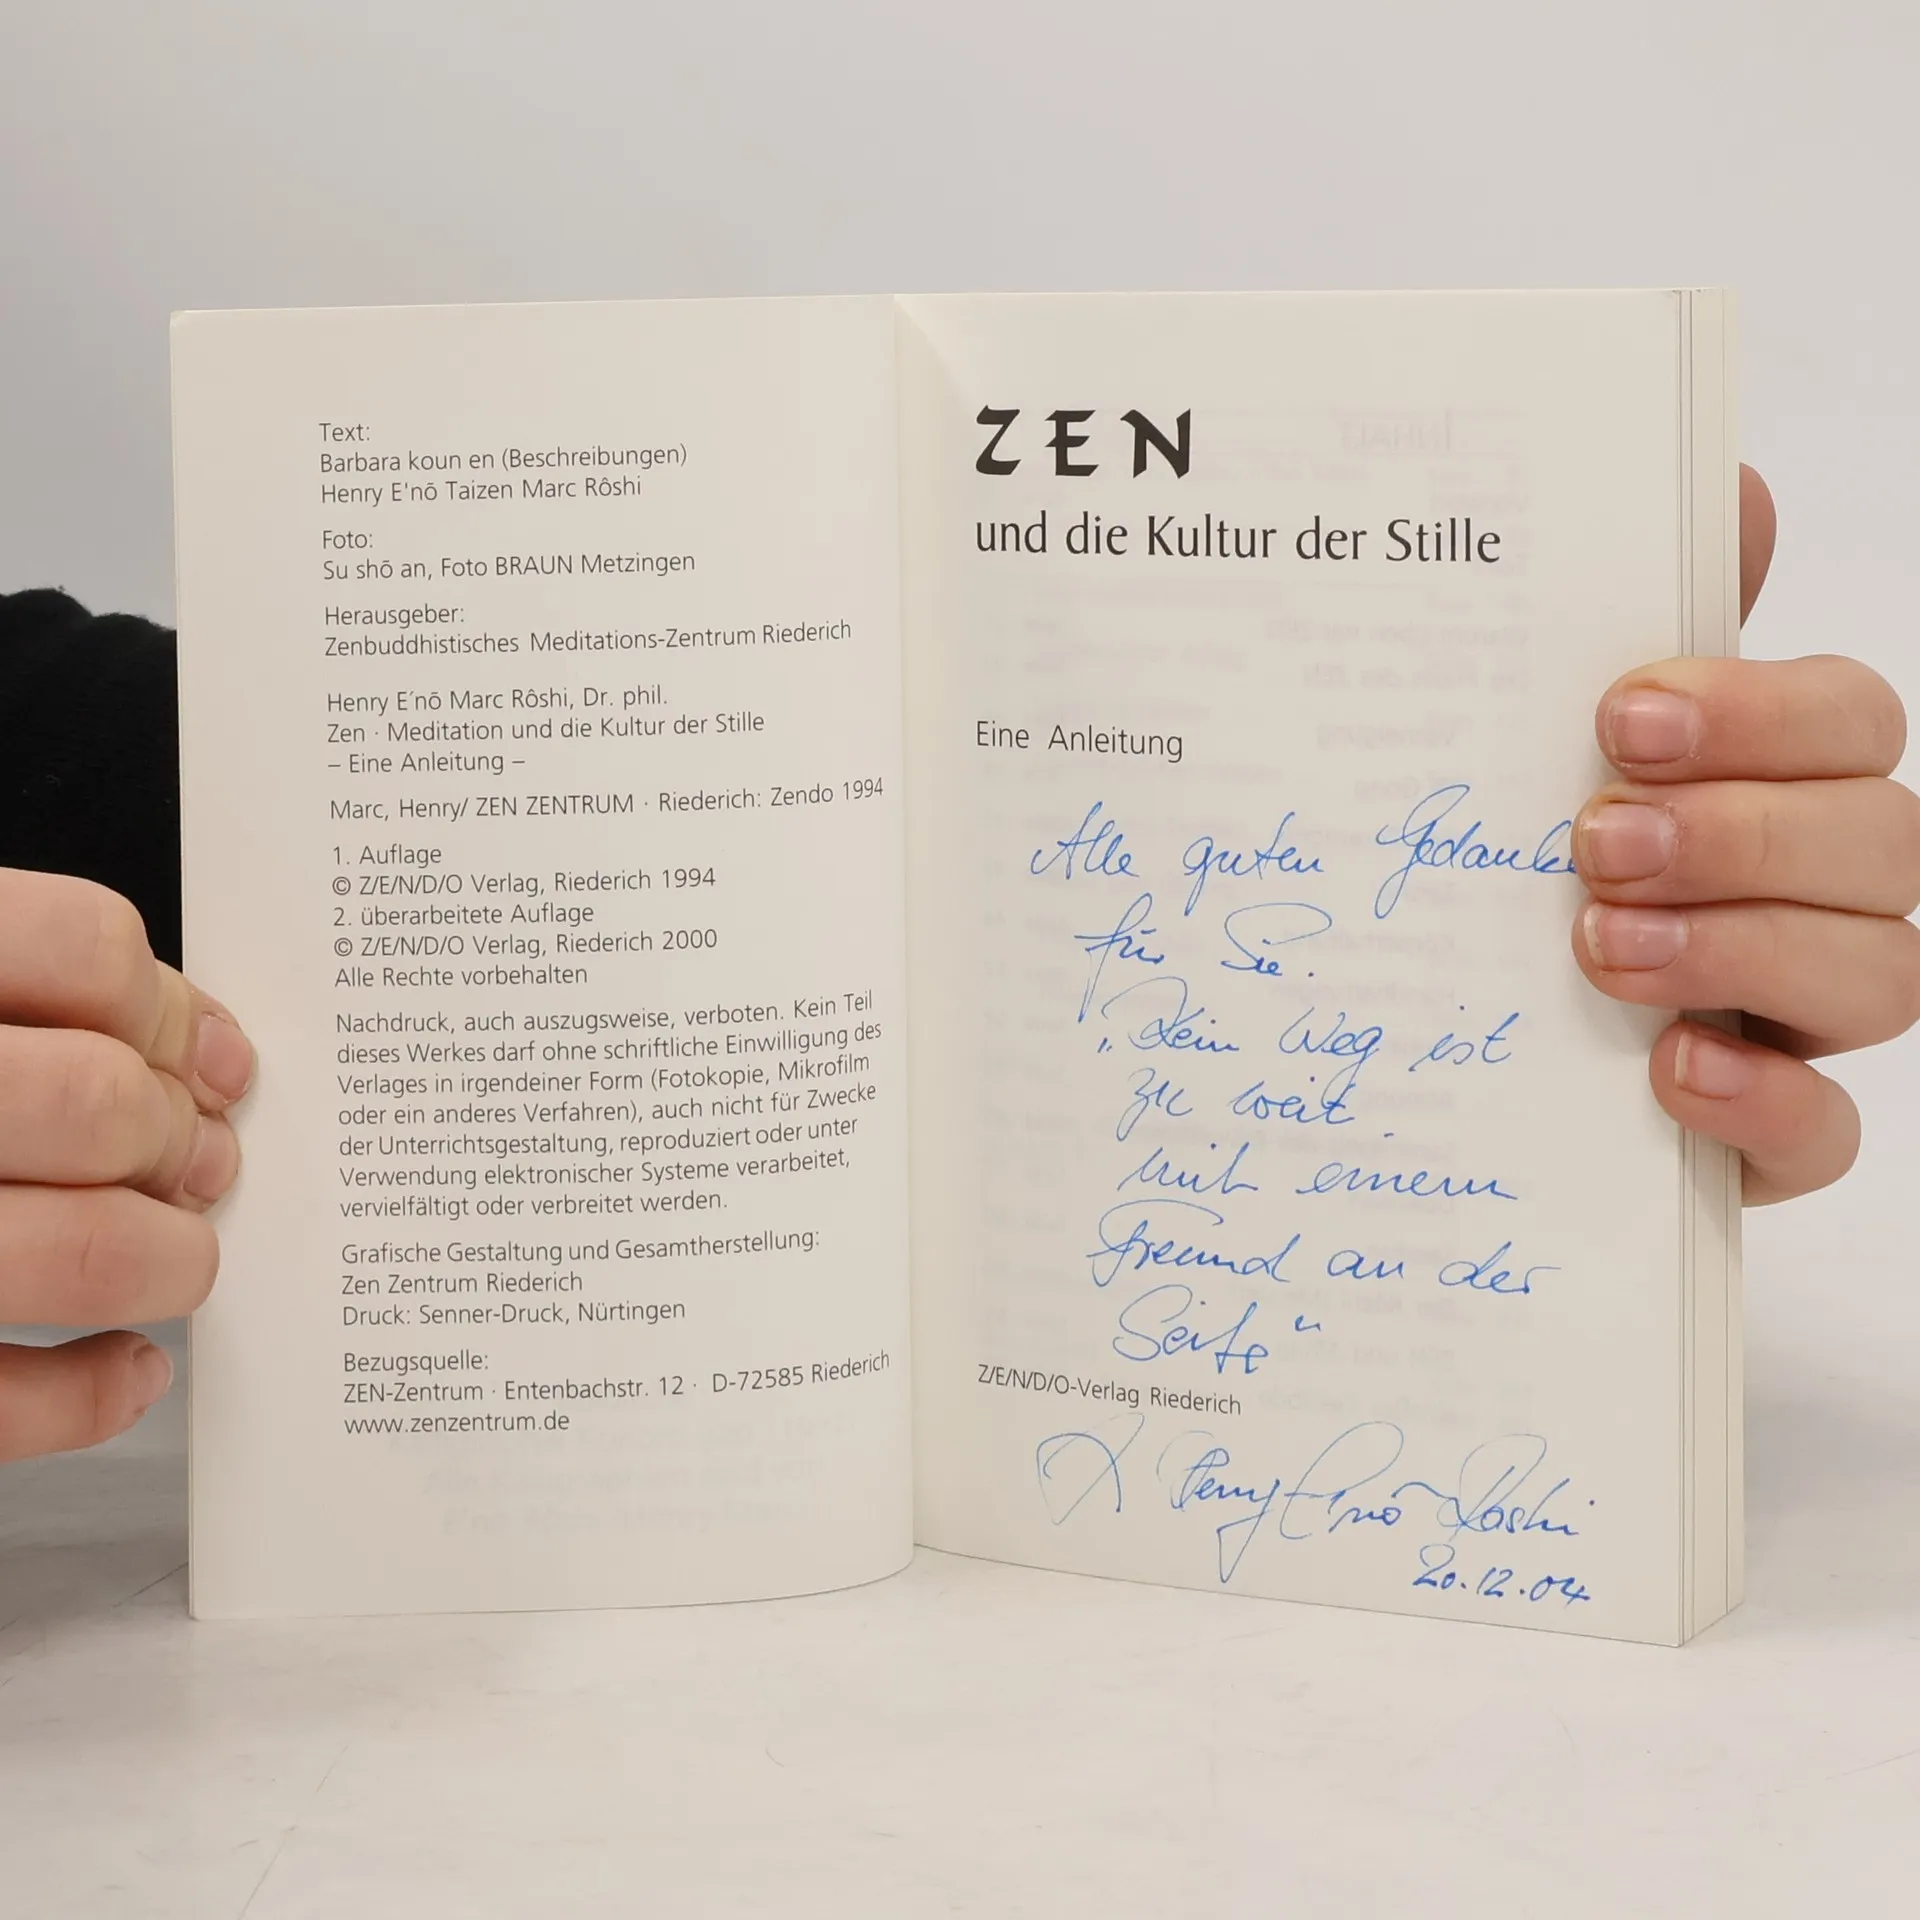 Text:
Barbara koun en (Beschreibungen)
Henry E'nō Taizen Marc Rôshi
Foto:
Su shō an, Foto BRAUN Metzingen
Herausgeber:
Zenbuddhistisches Meditations-Zentrum Riederich
Henry E´nō Marc Rôshi, Dr. phil.
Zen · Meditation und die Kultur der Stille
– Eine Anleitung –
Marc, Henry/ ZEN ZENTRUM · Riederich: Zendo 1994
1. Auflage
© Z/E/N/D/O Verlag, Riederich 1994
2. überarbeitete Auflage
© Z/E/N/D/O Verlag, Riederich 2000
Alle Rechte vorbehalten
Nachdruck, auch auszugsweise, verboten. Kein Teil
dieses Werkes darf ohne schriftliche Einwilligung des
Verlages in irgendeiner Form (Fotokopie, Mikrofilm
oder ein anderes Verfahren), auch nicht für Zwecke
der Unterrichtsgestaltung, reproduziert oder unter
Verwendung elektronischer Systeme verarbeitet,
vervielfältigt oder verbreitet werden.
Grafische Gestaltung und Gesamtherstellung:
Zen Zentrum Riederich
Druck: Senner-Druck, Nürtingen
Bezugsquelle:
ZEN-Zentrum · Entenbachstr. 12 · D-72585 Riederich
www.zenzentrum.de
ZEN
und die Kultur der Stille
Eine Anleitung
Alle guten Gedanke
für Sie.
„Kein Weg ist
zu weit
mit einem
Freund an der
Seite"
Z/E/N/D/O-Verlag Riederich
Henry E'nō Roshi
20.12.04